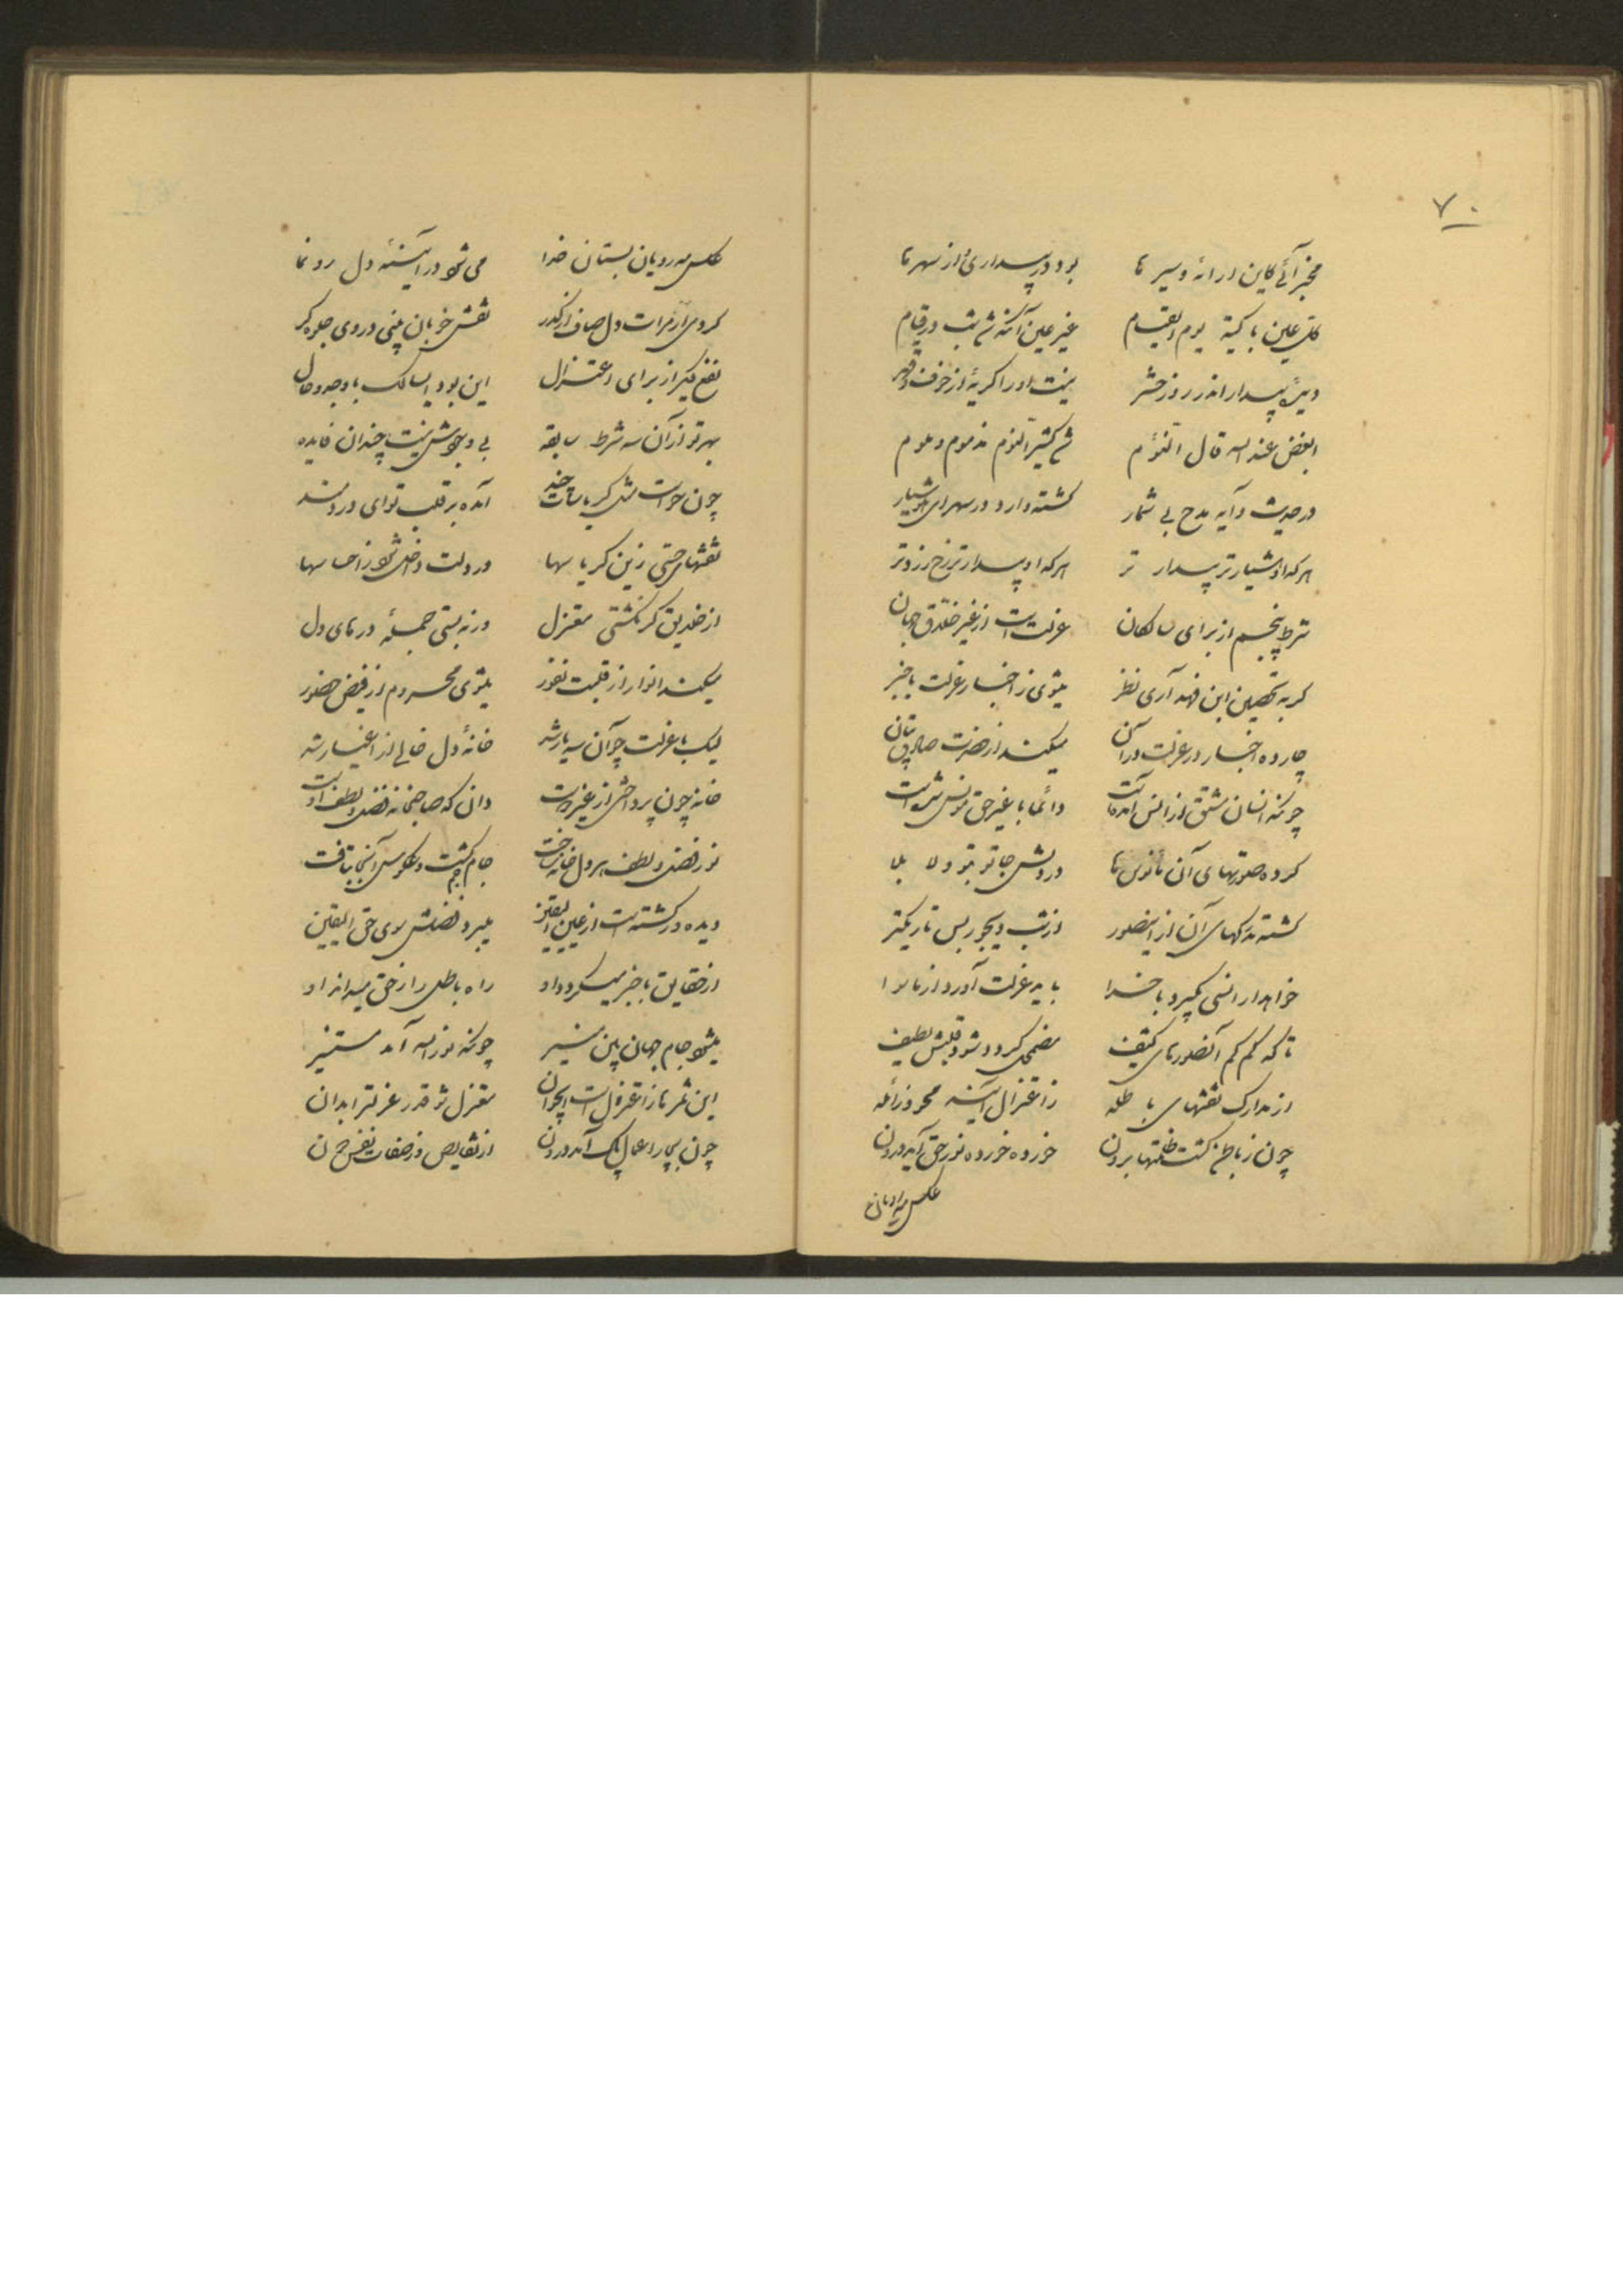 ۷۰
مخبر آئی کاین اراده و سیر ما بود در بیداری از سهر ما
کل عین باکیة یوم القیام غیر عین آنکه شب در قیام
دیدهٔ بیدار اندر روز حشر نیست او را گریهٔ از خوف و قهر
ابغض عند الله قال النوم کثیر النوم مذموم و ملوم
در حدیث و آیه مدح بی شمار گشته وارد در سهر ای هوشیار
هر که او هشیارتر بیدار تر هر که او بیدارتر رخ زردتر
شرط پنجم از برای سالکان عزلت است از غیر خلاق جهان
گر به تحصیل این فند آری نظر میشوی ز اخبار عزلت باخبر
چارده اخبار در عزلت در آن میکند از حضرت صادق بیان
چونکه انسان مشتق از انس آمده است دائما با غیر حق مونس شده است
کرده صورتهای آن مانوس ها در دلش جا تو بتو و لا بلا
گشته مدرکهای آن از این صور از شب دیجور بس تاریکتر
خواهد ار انسی بگیرد با خدا باید عزلت آورد از ما سوا
تا که کم کم آنصورهای کثیف مضمحل گردد شود قلبش لطیف
از مدارک نقشهای باطله ز اعتزال آینه محو و زائله
چون ز باطن گشت ظلمتها برون خورده خورده نور حق آید درون
عکس مه رویان
عکس مه رویان بستان خدا می شود در آینهٔ دل رو نما
کردی ار مرآت دل صاف از کدر نقش خوبان بینی در وی جلوه گر
نفع دیگر از برای اعتزال این بود ای سالک با وجد و حال
بهر تو از آن سه شرط سابقه بی وجودش نیست چندان فایده
چون حواست مثل کریاسات چند آمده بر قلب تو ای دردمند
نقشهای حسی زین کریاسها در دلت داخل شود ز احساسها
از خلایق گر نگشتی معتزل ور نه بستی جمله درهای دل
میکند انوار از قلبت نفور میشوی محروم از فیض حضور
لیک با عزلت چو آن سه یار شد خانهٔ دل خالی از اغیار شد
خانه چون پرداختی از غیر دوست دان که صاحبخانه فضل و لطف اوست
نور فضل و لطف هر دل خانه ساخت جام جم گشت و عکوس آنجا بتافت
دیده ور گشته است از عین الیقین میبرد فضلش سوی حق الیقین
از حقایق باخبر میگردد او راه باطل را ز حق میداند او
میشود جام جهان بین منیر چونکه نور الله آمد مستنیر
این ثمرها ز اعتزال است ای جوان معتزل شو قدر عزلت را بدان
چون بپیرا عمال پاک آمد درون از نقایص وز صفات نفس دون